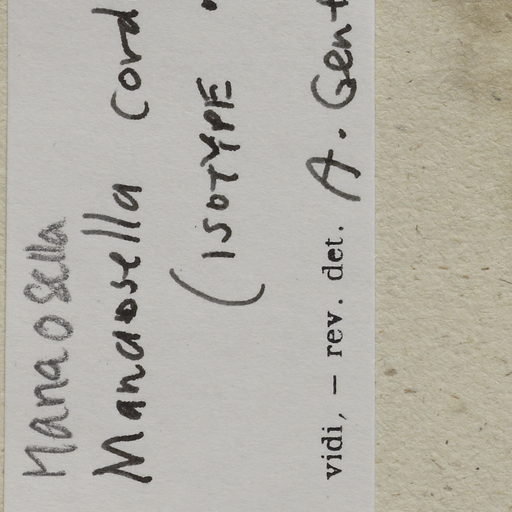 Manaosella
Manaosella cord
(ISOTYPE
vidi, — rev. det. A. Gent